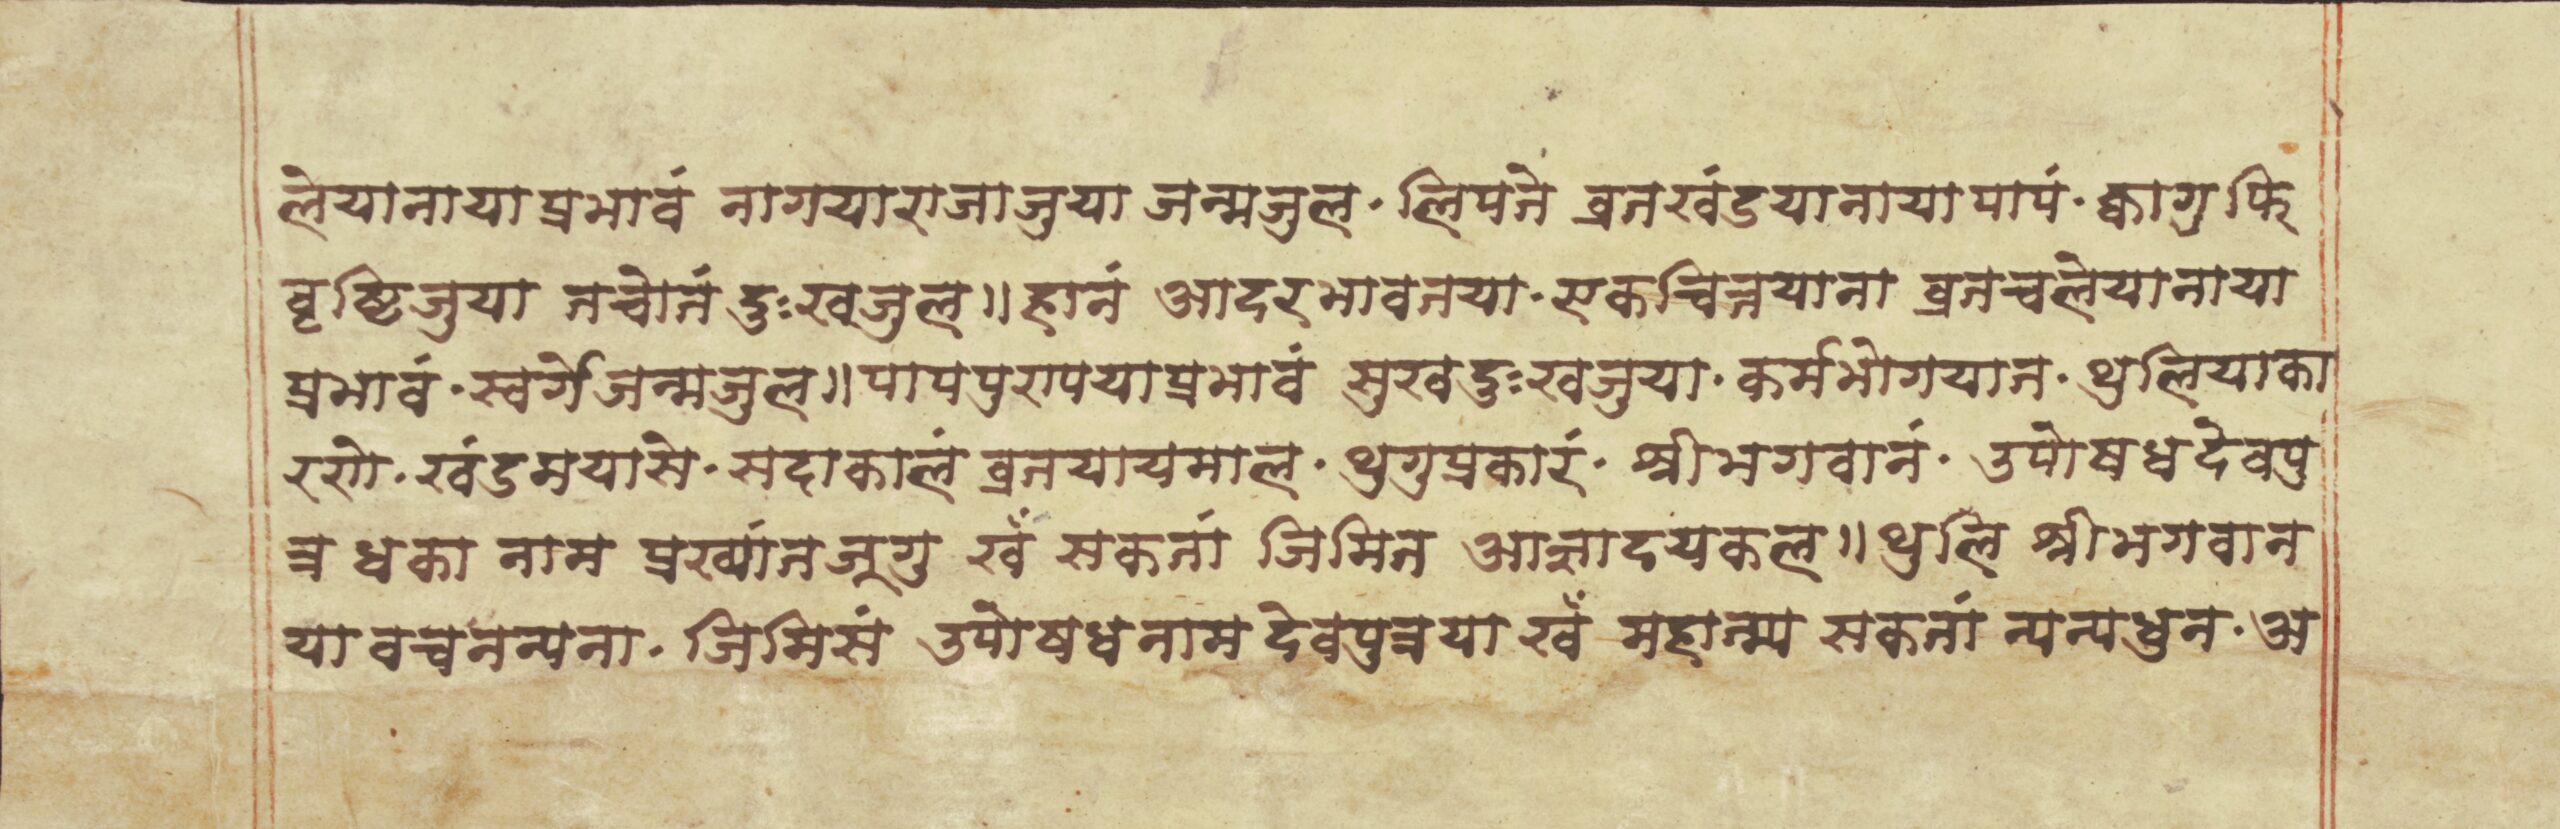 लेयानाया प्रभावं नागयाराजाजुया जन्मजुल · लिपते व्रतखंडयानाया पापं · क्वागु फि
वृष्टिजुया नचोनं दुःखजुल ॥ हानं आदरभावनया · एकचित्तयाना व्रतचलेयानाया
प्रभावं · स्वर्गे जन्मजुल ॥ पापपुण्यया प्रभावं सुखदुःखजुया · कर्मभोगयात · थुलियाका
रणे · खंडमयासे · सदाकालं व्रतयायमाल · थुगुप्रकारं · श्रीभगवानं · उपोषधदेवपु
त्र धका नाम प्रख्यांतजूगु खँ सकतां जिमित आज्ञादयकल ॥ थुलि श्रीभगवान
या वचनन्यना · जिमिसं उपोषधनाम देवपुत्रया खँ महात्म्य सकतां न्यन्यधुन · अ